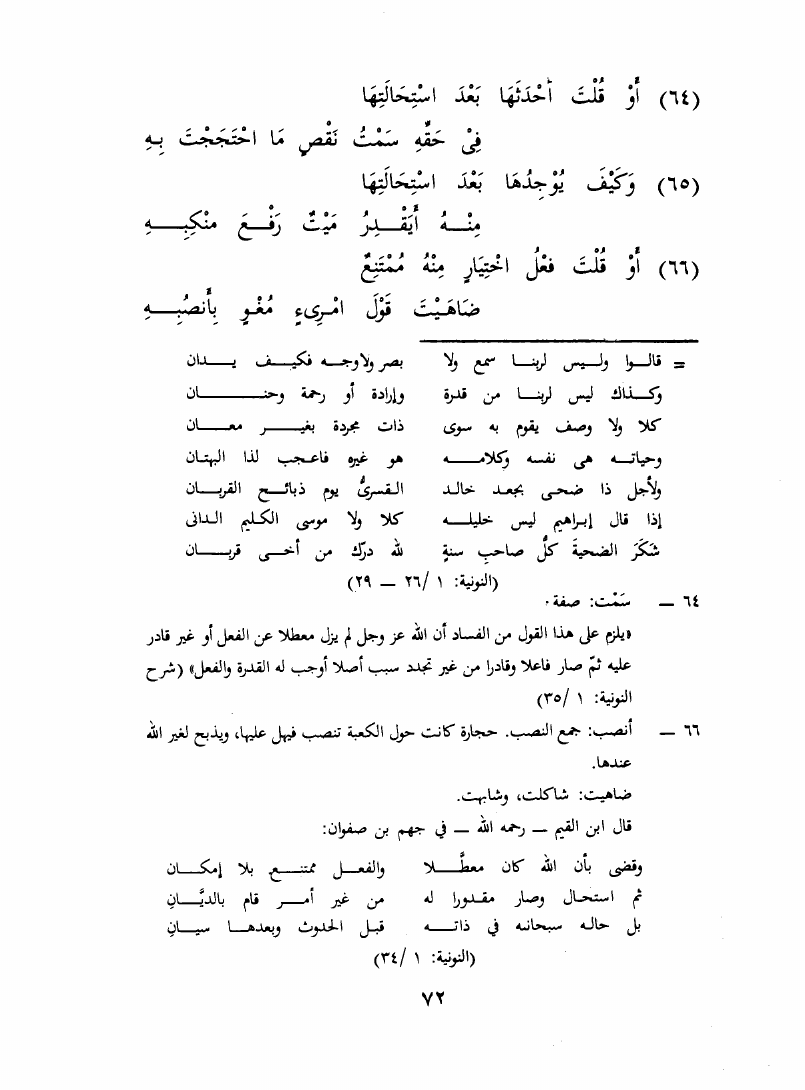 (٦٤) أَوْ قُلْتَ أَحْدَثَهَا بَعْدَ اسْتِحَالَتِهَا
فِىْ حَقِّهِ سَمْتُ نَقْصٍ مَا احْتَجَجْتَ بِهِ
(٦٥) وَكَيْفَ يُوْجِدُهَا بَعْدَ اسْتِحَالَتِهَا
مِنْـــهُ أَيَقْــدِرُ مَيْتٌ رَفْــعَ مَنْكِبِـــهِ
(٦٦) أَوْ قُلْتَ فِعْلُ اخْتِيَارٍ مِنْهُ مُمْتَنِعٌ
ضَاهَيْتَ قَوْلَ امْرِىءٍ مُغْوٍ بِأَنْصُبِـــهِ
= قالـــوا وليـــس لربنـــا سمع ولا بصر ولا وجـــه فكيـــف يـــدان
وكـــذاك ليس لربنـــا من قدرة وإرادة أو رحمة وحنـــان
كلا ولا وصف يقوم به سوى ذات مجردة بغيـــر معـــان
وحياتـــه هى نفسه وكلامـــه هو غيره فاعجب لذا البهتـان
ولأجل ذا ضحى بجعد خالـد القسرىُّ يوم ذبائـــح القربـــان
إذا قال إبراهيم ليس خليلـــه كلا ولا موسى الكليم الدانى
شَكَرَ الضحيةَ كلُّ صاحبِ سنةٍ لله درّك من أخـــى قربـــان
(النونية: ١ /٢٦ — ٢٩)
٦٤ — سَمْت: صفة.
«يلزم على هذا القول من الفساد أن الله عز وجل لم يزل معطلا عن الفعل أو غير قادر
عليه ثمّ صار فاعلا وقادرا من غير تجدد سبب أصلا أوجب له القدرة والفعل» (شرح
النونية: ١ /٣٥)
٦٦ — أنصب: جمع النصب. حجارة كانت حول الكعبة تنصب فيهل عليها، ويذبح لغير الله
عندها.
ضاهيت: شاكلت، وشابهت.
قال ابن القيم — رحمه الله — في جهم بن صفوان:
وقضى بأن الله كان معطَّـــلا والفعـــل ممتنـــع بلا إمكـــان
ثم استحال وصار مقدورا له من غير أمـــر قام بالديَّـــانِ
بل حاله سبحانه في ذاتـــه قبل الحدوث وبعدهـــا سيـــانِ
(النونية: ١ /٣٤)
٧٢